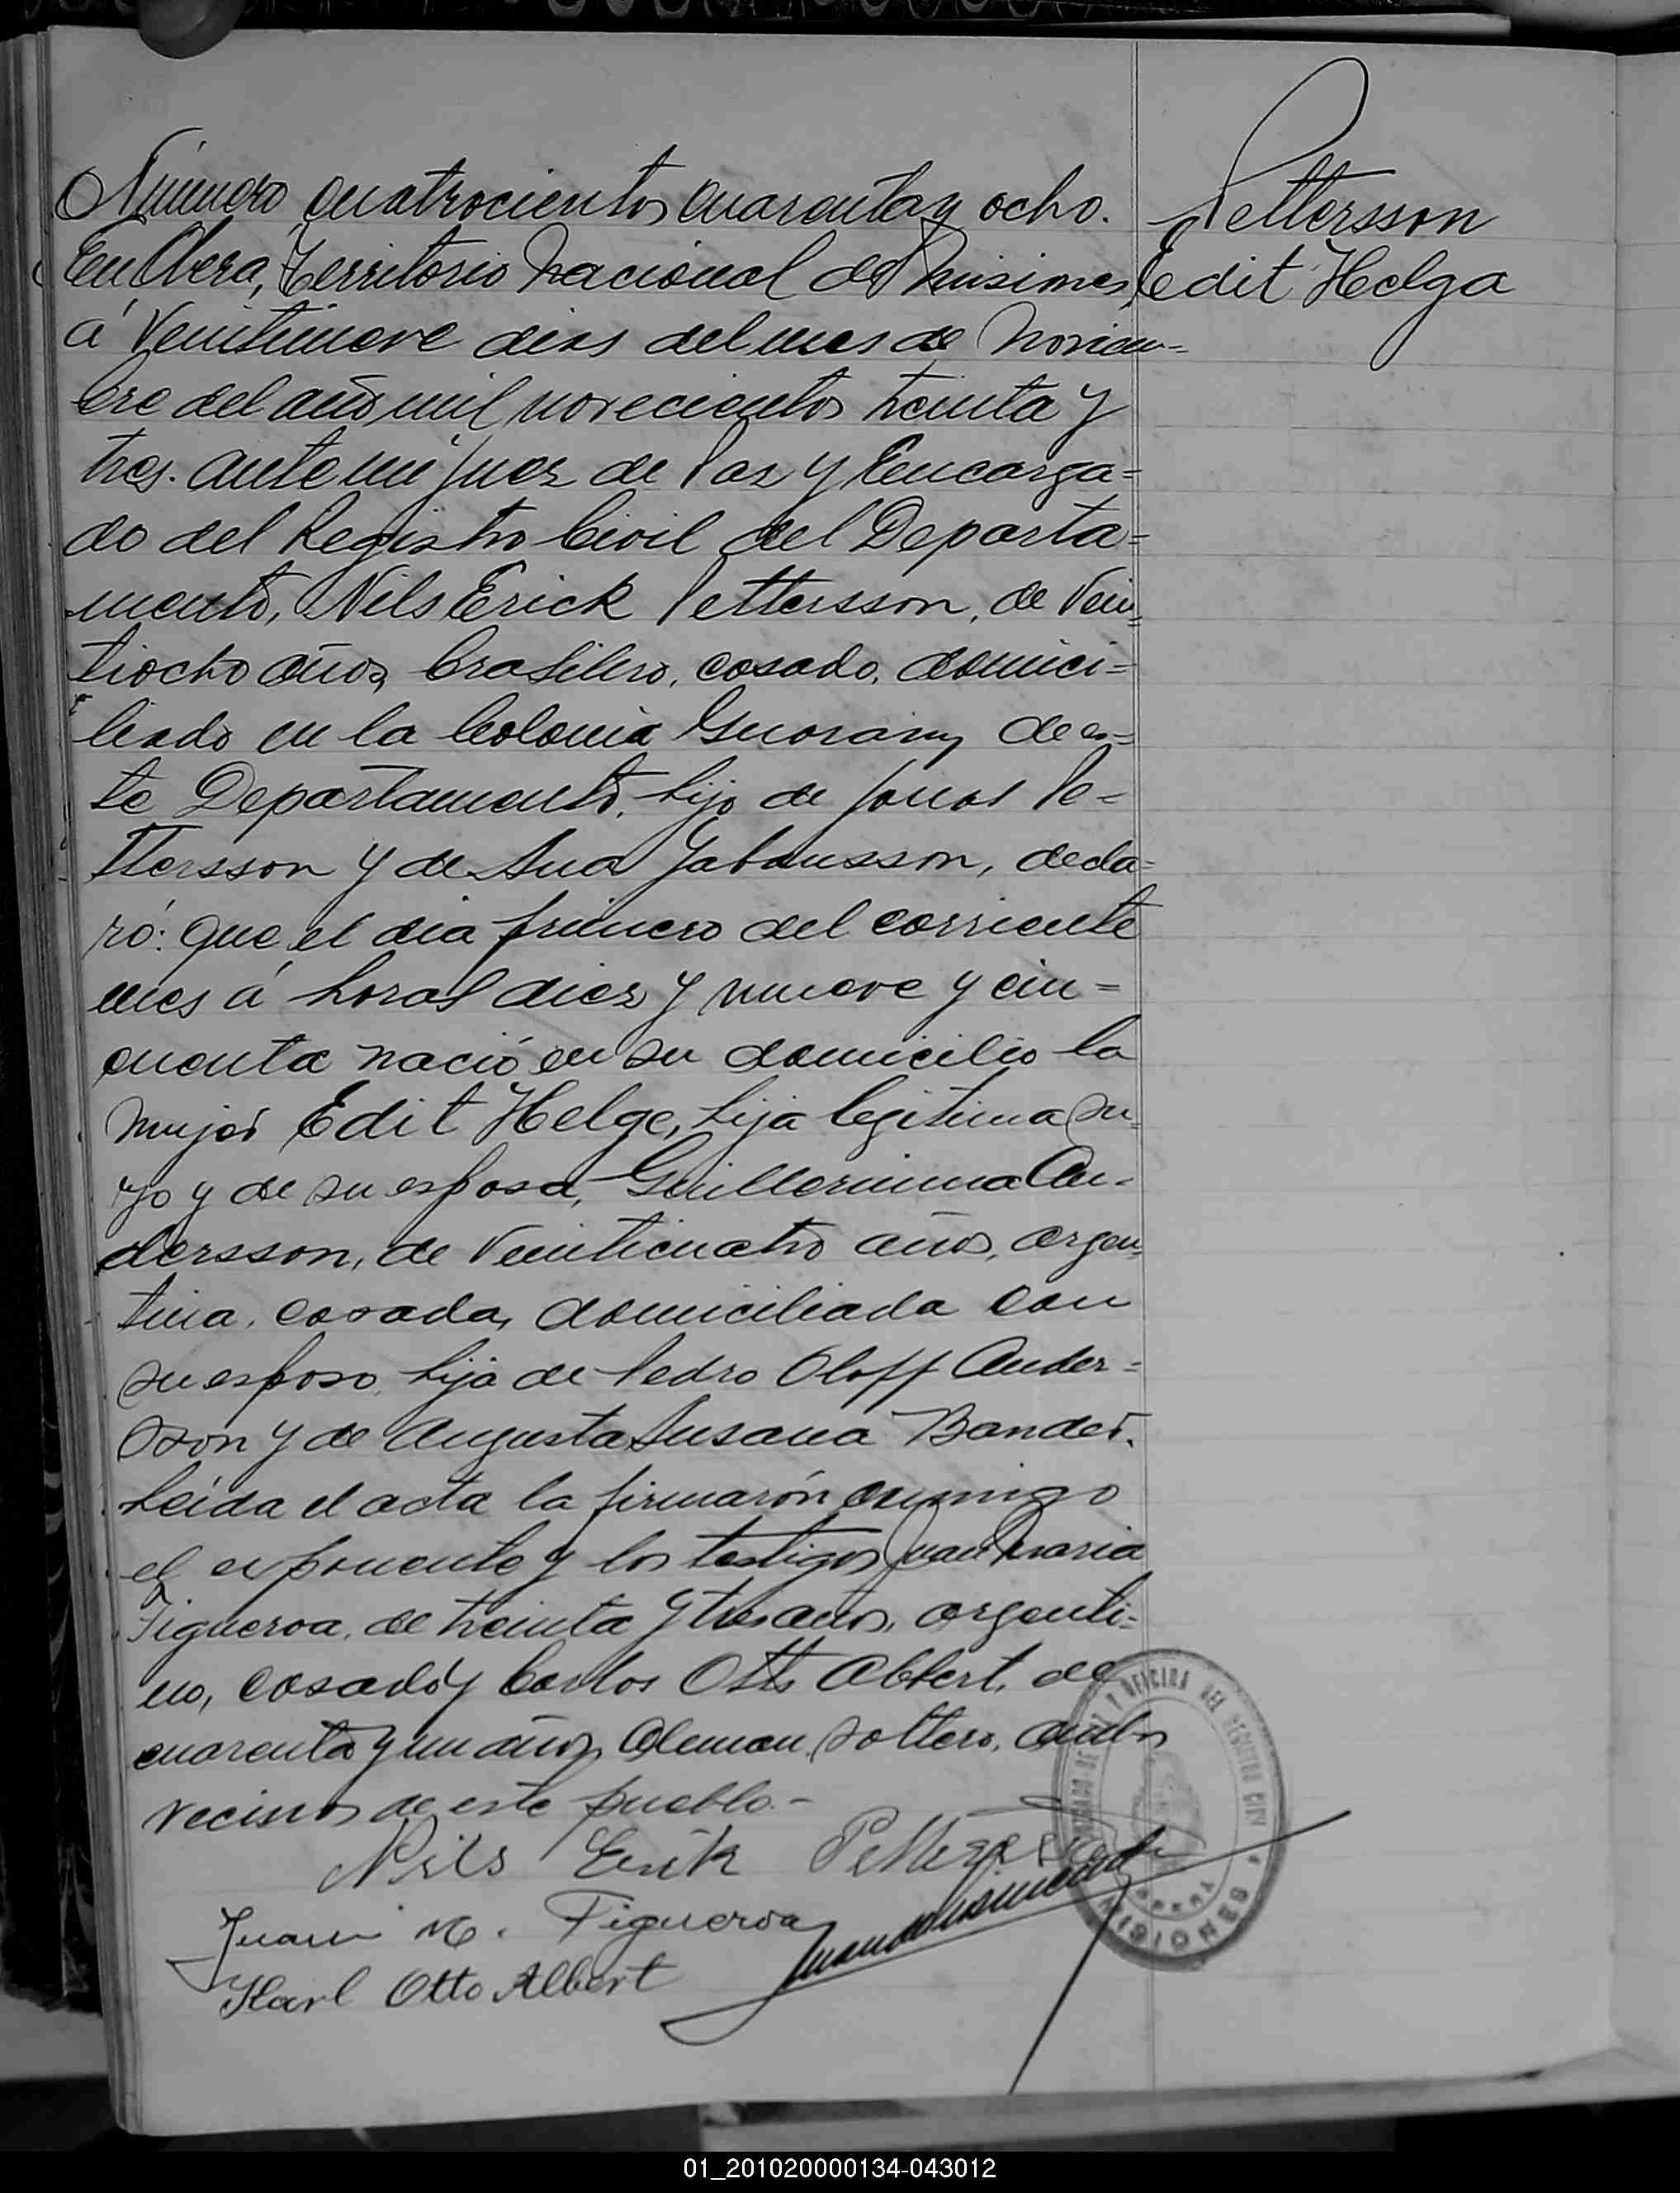 Número cuatrocientos cuarenta y ocho.
En Obera, Territorio Nacional de Misiones,
á Veintinueve dias del mes de Noviem=
bre del año mil novecientos treinta y
tres. ante mi Juez de Paz y Encarga=
do del Registro Civil del Departa=
mento, Nils Erick Pettersson, de Vein=
tiocho años, brasilero, casado, domici=
liado en la Colonia Guarany de es=
te Departamento, hijo de Jonas Pe=
ttersson y de Ana, decla=
ró: que el dia primero del corriente
mes á horas diez y nueve y cin=
cuenta nació en su domicilio la
mujer Edit Helge, hija legitima su=
ya y de su esposa, Guillermina An=
dersson, de Veinticuatro años, argen=
tina, casada, domiciliada con
su esposo, hija de Pedro Oloff Ander=
sson y de Augusta Susana Bander.
Leida el acta la firmarón conmigo
el exponente y los testigos Juan Maria
Figueroa, de treinta y tres años, argenti=
no, casado y Carlos Otto Albert, de
cuarenta y un años, Aleman, soltero, ambos
vecinos de este pueblo.-
Nils Erik Pettersson
Juan M. Figueroa
Karl Otto Albert
Pettersson
Edit Helga
JUZGADO DE PAZ Y OFICINA DEL REGISTRO CIVIL
MISIONES
01_201020000134-043012